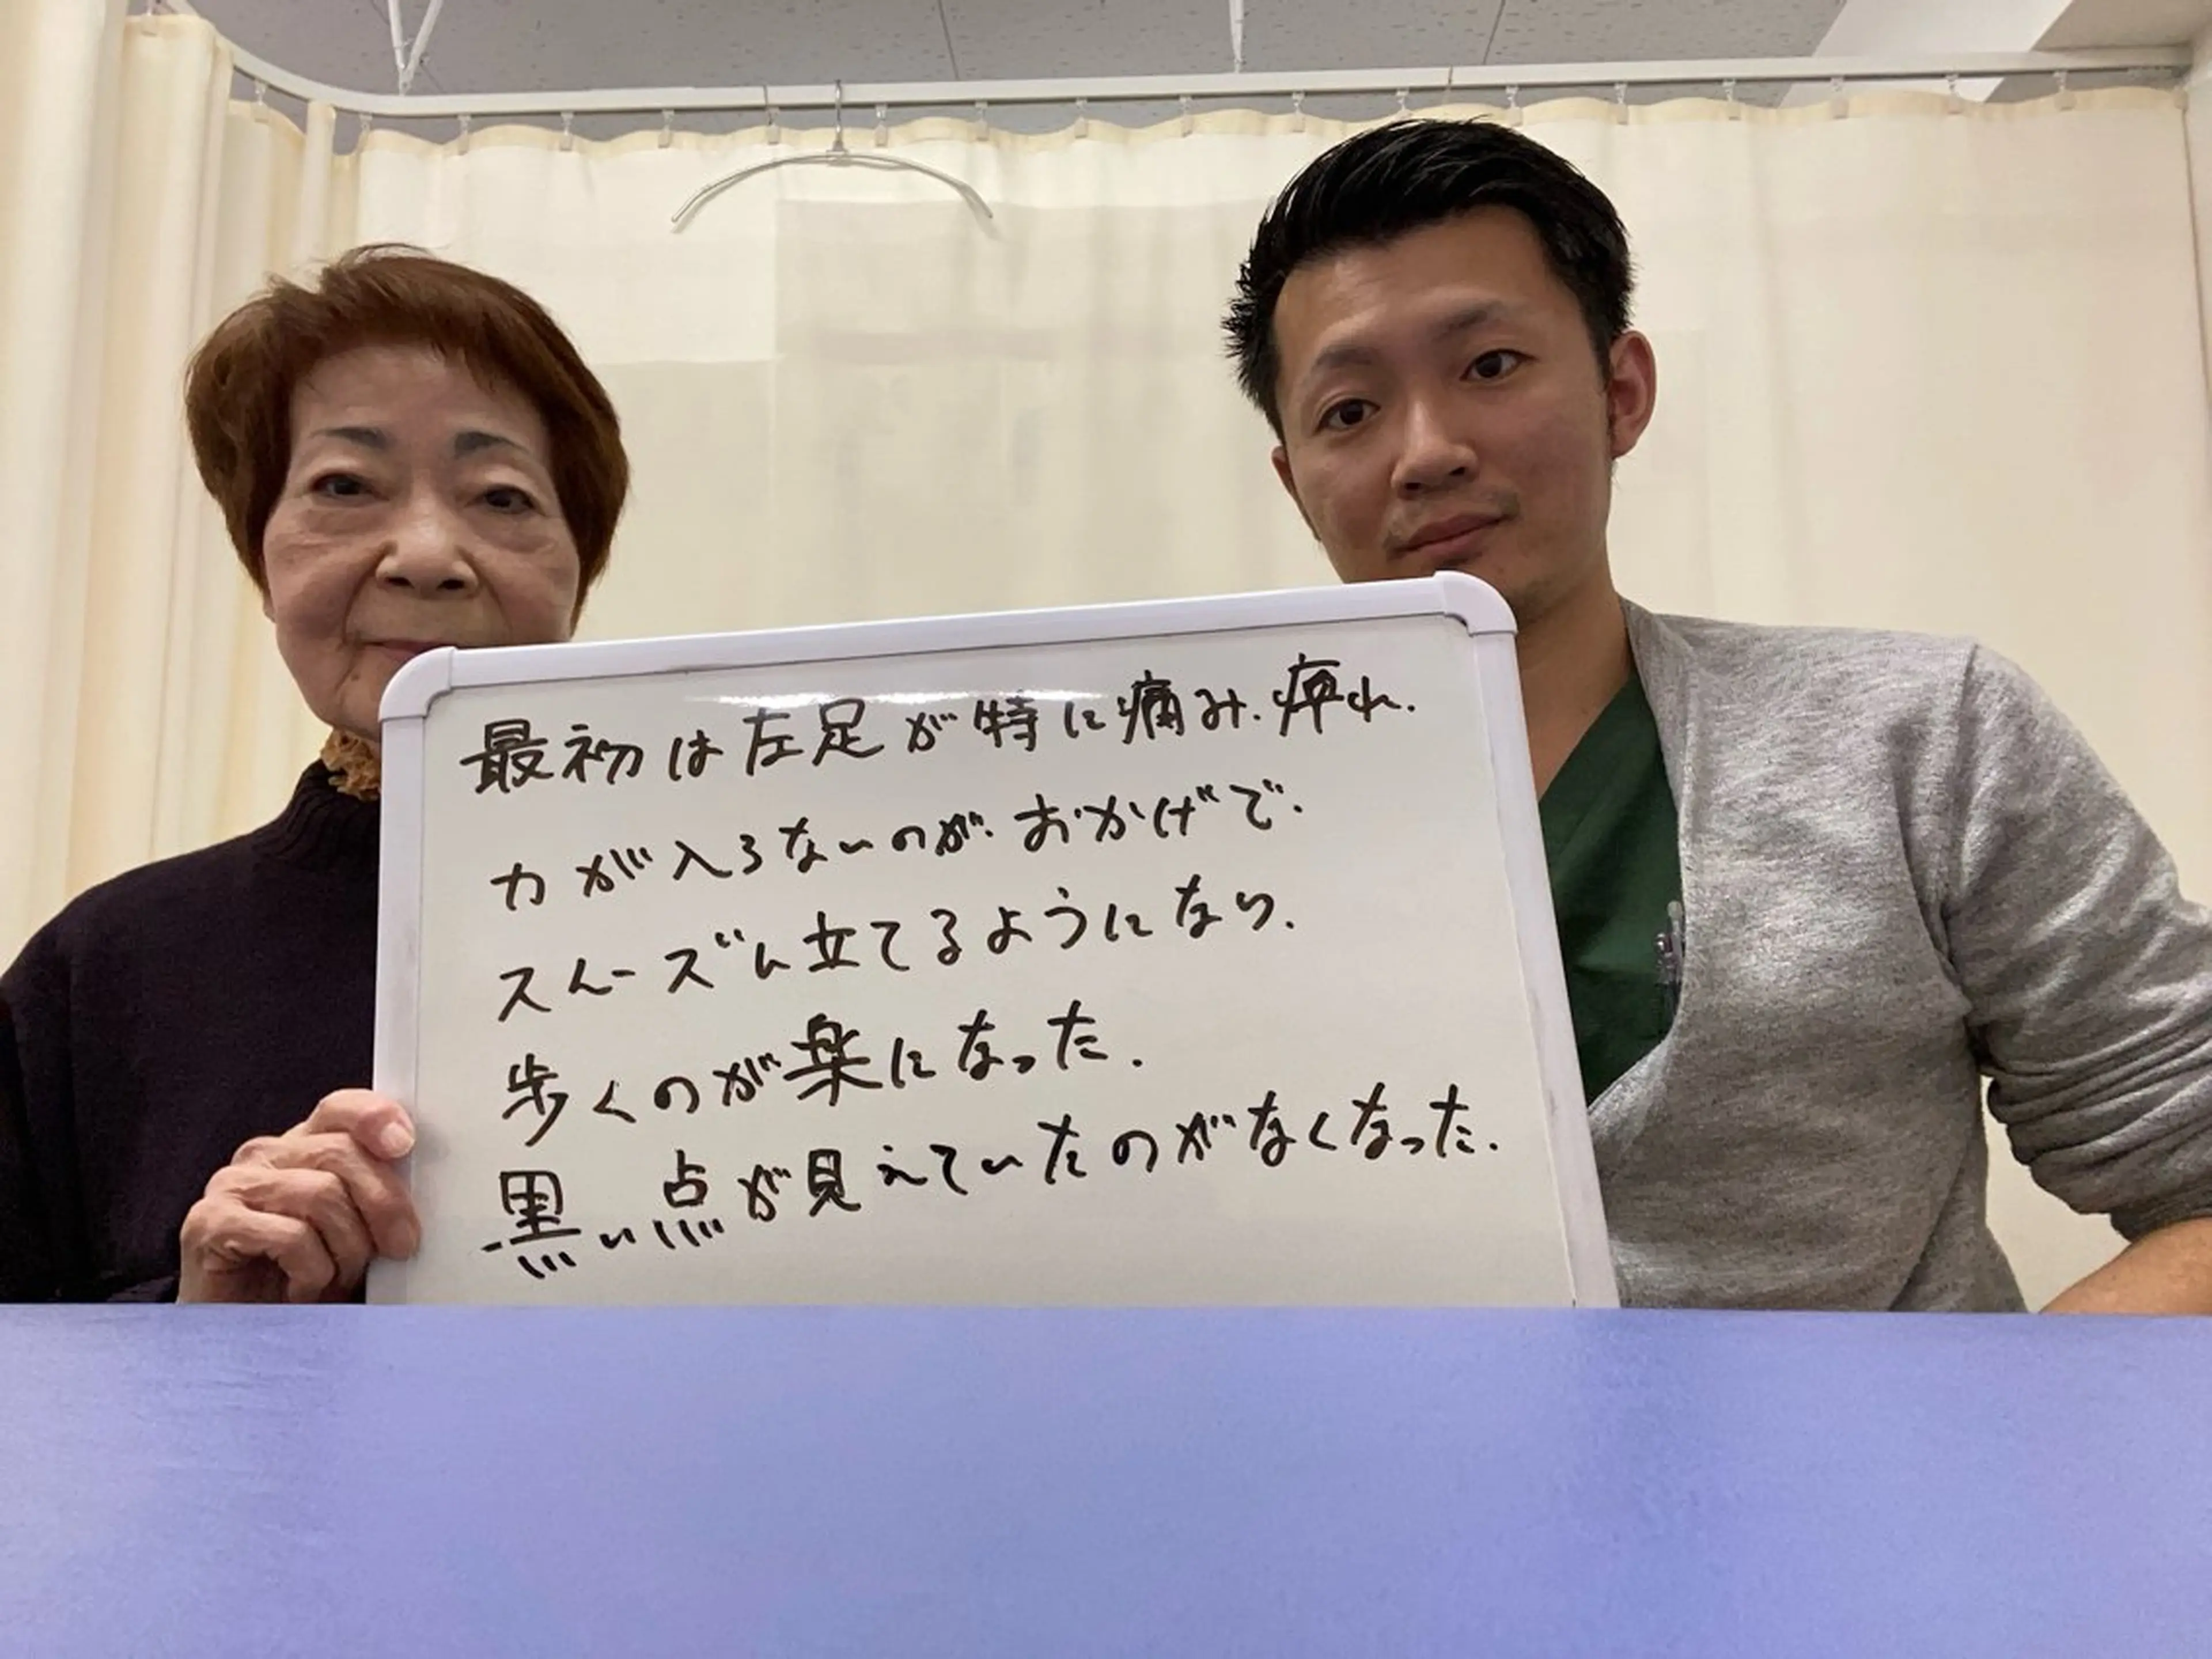 最初は左足が特に痛み、痺れ、
力が入らないのが、おかげで、
スムーズに立てるようになり、
歩くのが楽になった。
黒い点が見えていたのがなくなった。